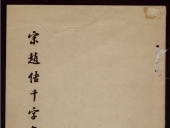 宋趙佶千字文